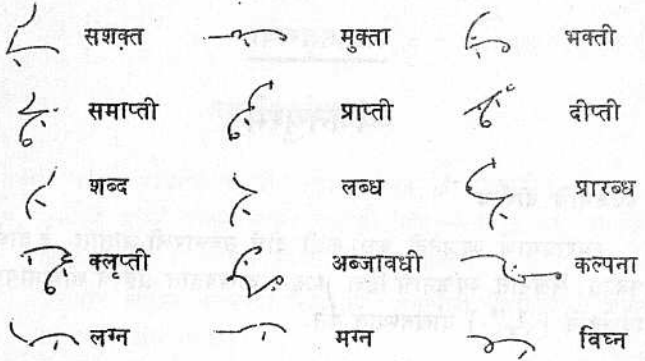 सशक्त मुक्ता भक्ती
समाप्ती प्राप्ती दीप्ती
शब्द लब्ध प्रारब्ध
क्लृप्ती अब्जावधी कल्पना
लग्न मग्न विघ्न